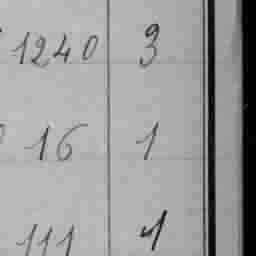 1240 3
16 1
111 1